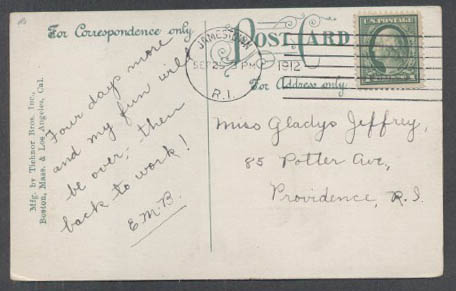 For Correspondence only
POST CARD
For Address only
JAMESTOWN
SEP 25 3 PM
1912
R.I.
U.S. POSTAGE
Mfg. by Tichnor Bros. Inc.,
Boston, Mass. & Los Angeles, Cal.
Four days more
and my fun will
be over, then
back to work!
E.M.B.
Miss Gladys Jeffrey,
85 Potter Ave,
Providence, R.I.